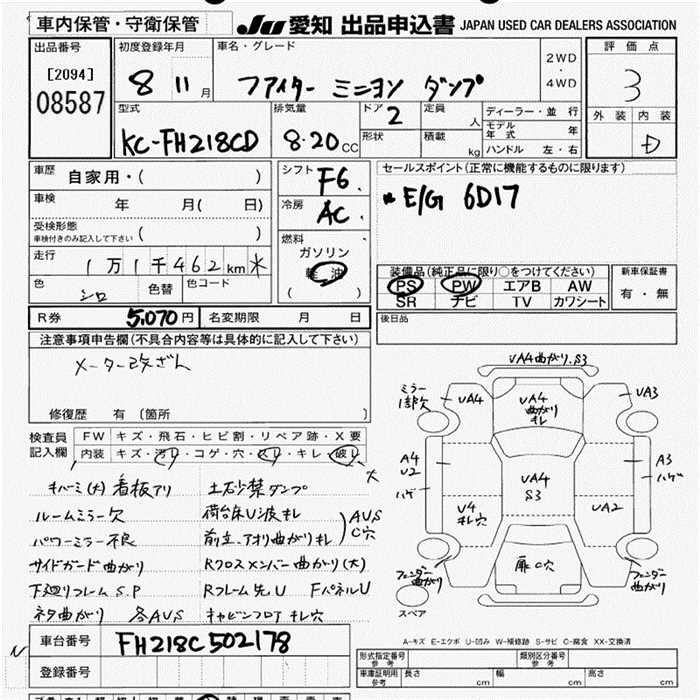 車内保管・守衛保管
JU 愛知 出品申込書 JAPAN USED CAR DEALERS ASSOCIATION
出品番号
[2094]
08587
初度登録年月
8 11月
車名・グレード
ファイター ミニヨン ダンプ
2WD
・
4WD
評価点
3
外装 内装
D
型式
KC-FH218CD
排気量
8.20 CC
ドア 2
形状
定員 人
積載 kg
ディーラー・並行
モデル年式 年
ハンドル 左・右
車歴 自家用・( )
車検 年 月( 日)
受検形態
車検付きのみ記入して下さい ( )
走行 1万1千462km*
色 シロ 色替 色コード
シフト F6
冷房 AC
燃料
ガソリン
軽油
( )
セールスポイント(正常に機能するものに限ります)
E/G 6D17
装備品(純正品に限り○をつけてください)
PS PW エアB AW
SR ナビ TV カワシート
新車保証書
有・無
R券 5,070円 名変期限 月 日
後日品
注意事項申告欄(不具合内容等は具体的に記入して下さい)
メーター改ざん
修復歴 有 [箇所 ]
検査員
記入欄
FW キズ・飛石・ヒビ割・リペア跡・X要
内装 キズ・汚レ・コゲ・穴・スレ・キレ・破レ
大
キバミ(大) 看板アリ
ルームミラー欠
パワーミラー不良
サイドガード曲がり
下廻りフレームS.P
ネタ曲がり 各AUS
土砂禁ダンプ
荷台床U波キレ
前立、アオリ曲がりキレ
AUS
C穴
Rクロスメンバー曲がり(大)
Rフレーム先U FパネルU
キャビンフロアキレ穴
VA4曲がり.S3
ミラー
1部欠
VA4
VA4
曲がり
キレ
VA3
A4
U2
ハゲ
VA4
S3
A3
ハゲ
V4
キレ穴
VA2
扉C穴
フェンダー
曲がり
フェンダー
曲がり
スペア
A-キズ E-エクボ U-凹み W-補修跡 S-サビ C-腐食 XX-交換済
N
車台番号 FH218C502178
登録番号
形式指定番号
参考
類別区分番号
参考
車庫証明用
参考
長さ cm 幅 cm 高さ cm